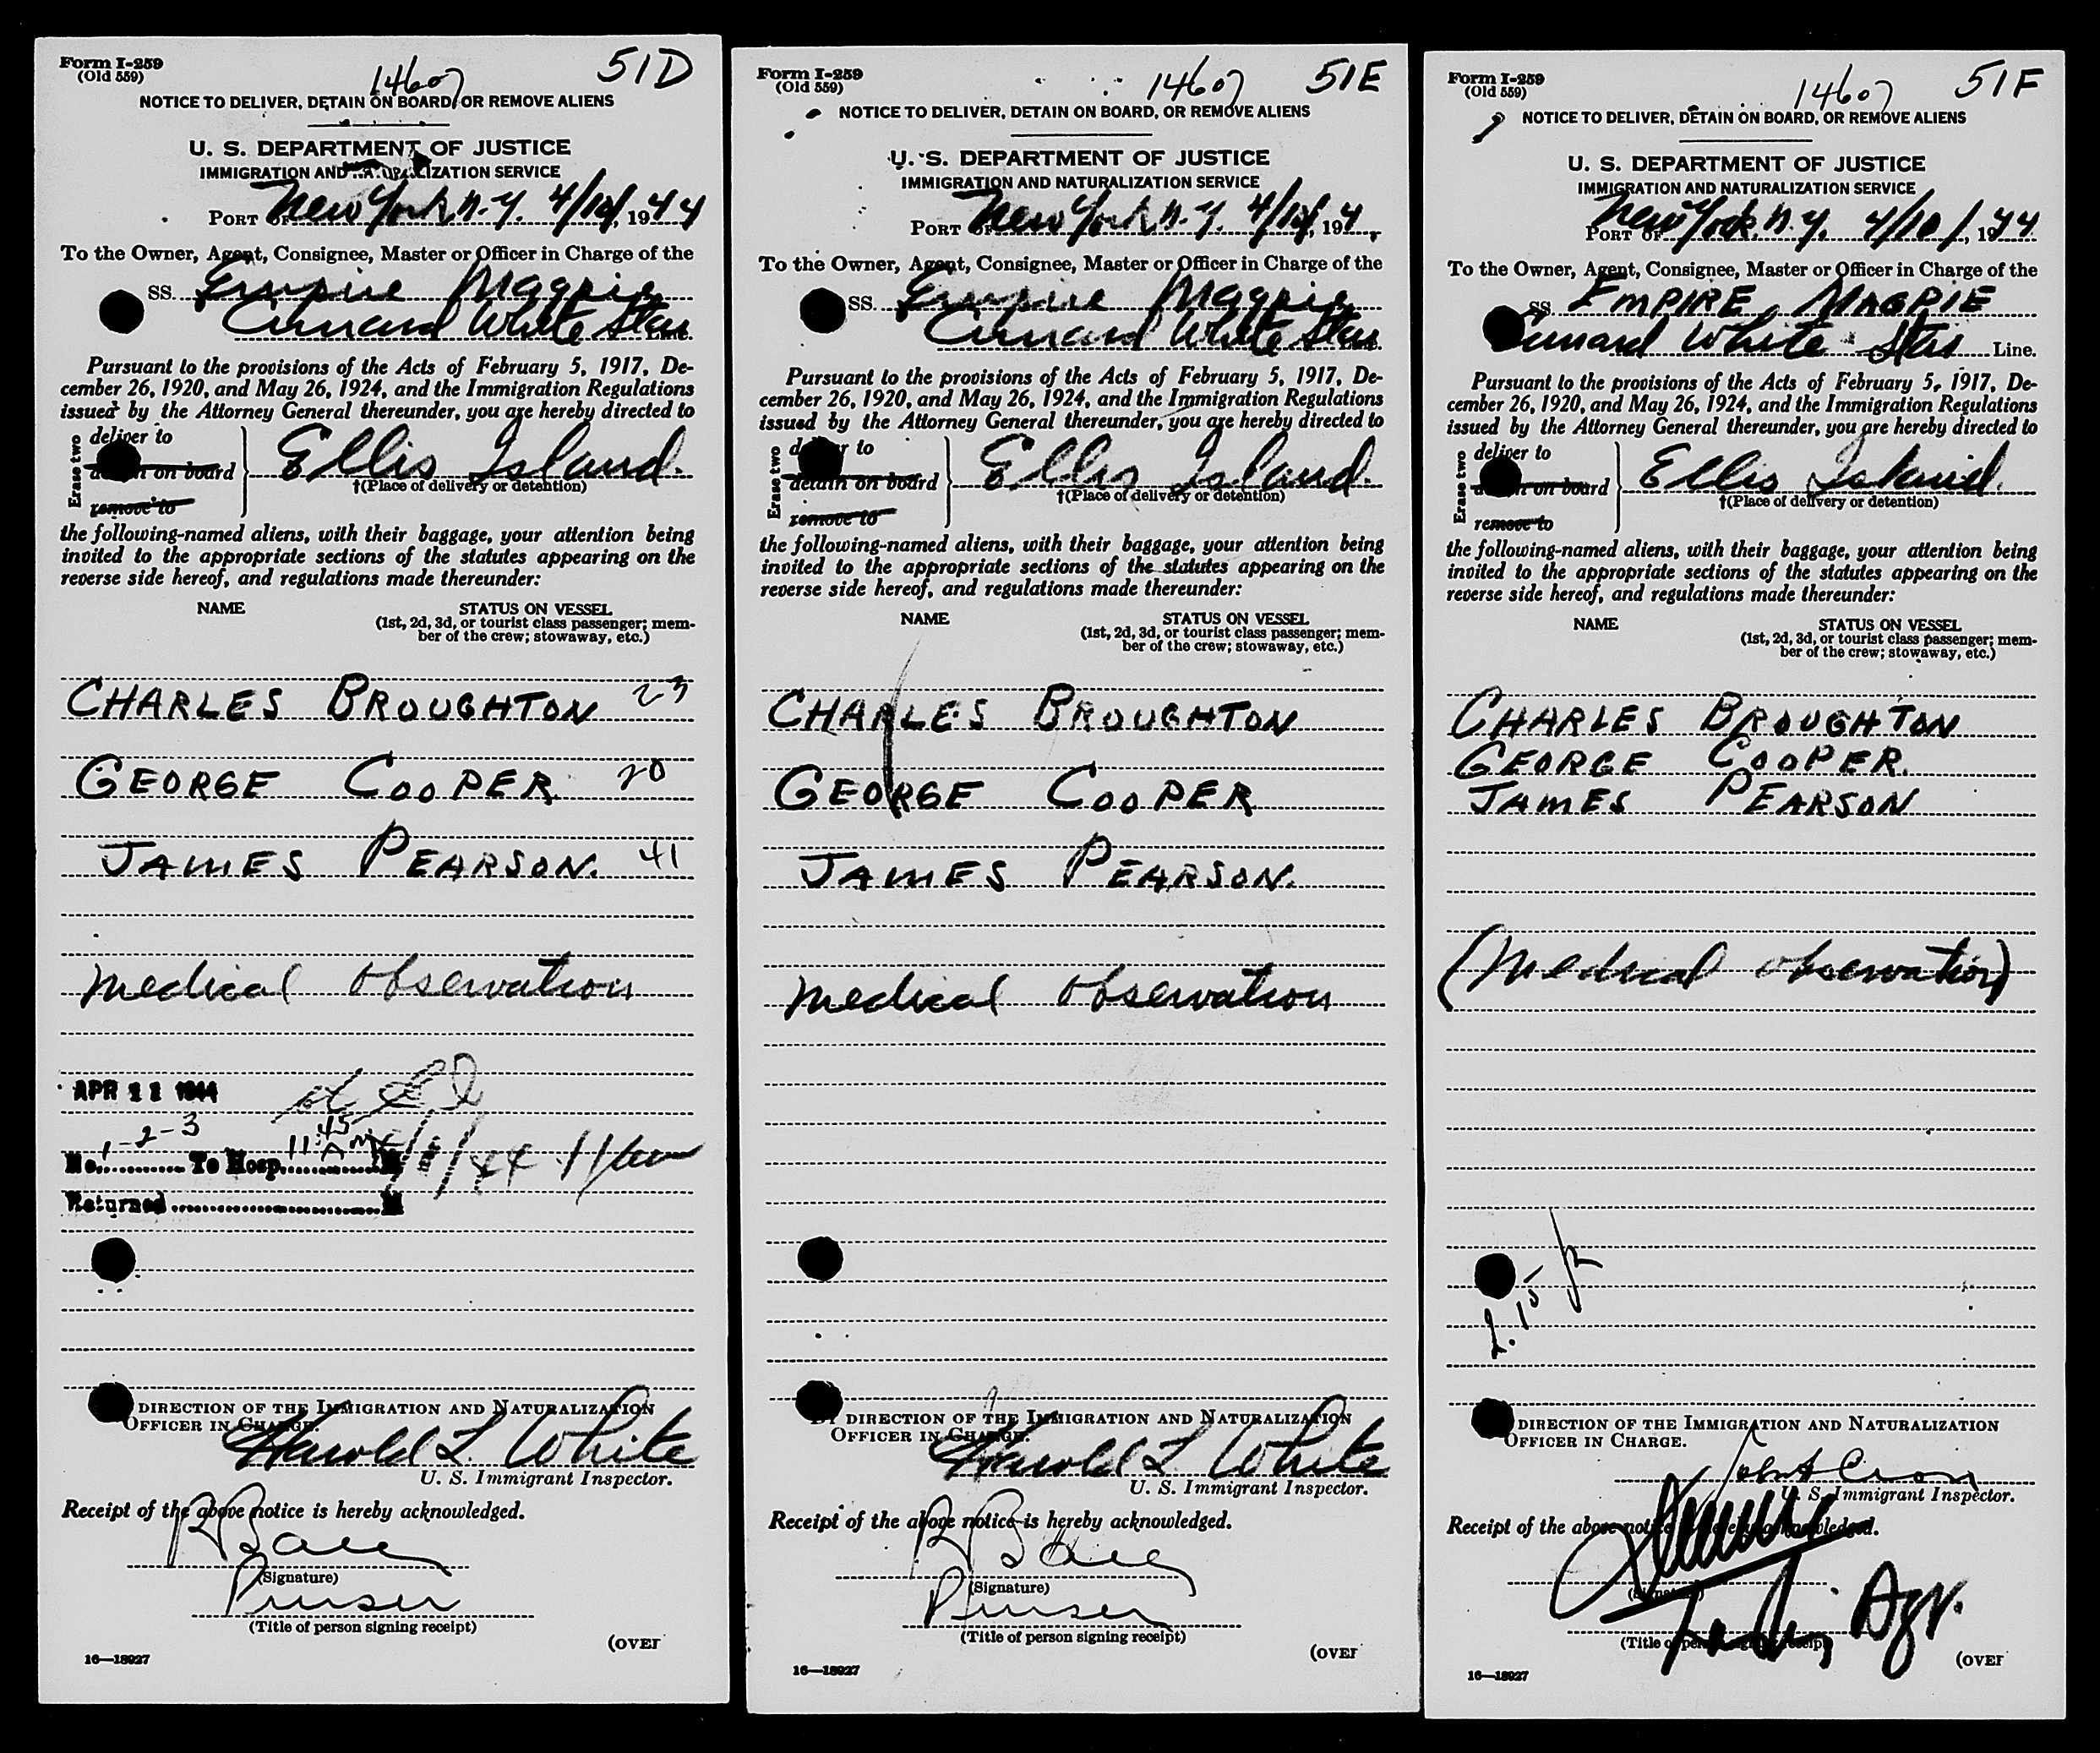 Form I-259
(Old 559)
14607
51D
NOTICE TO DELIVER, DETAIN ON BOARD, OR REMOVE ALIENS
U. S. DEPARTMENT OF JUSTICE
IMMIGRATION AND NATURALIZATION SERVICE
PORT OF New York, N.Y. 4/10, 1944
To the Owner, Agent, Consignee, Master or Officer in Charge of the
SS. Empire Magpie
Cunard White Star Line.
Pursuant to the provisions of the Acts of February 5, 1917, De-
cember 26, 1920, and May 26, 1924, and the Immigration Regulations
issued by the Attorney General thereunder, you are hereby directed to
Erase two
deliver to
detain on board
remove to
Ellis Island.
†(Place of delivery or detention)
the following-named aliens, with their baggage, your attention being
invited to the appropriate sections of the statutes appearing on the
reverse side hereof, and regulations made thereunder:
NAME STATUS ON VESSEL
(1st, 2d, 3d, or tourist class passenger; mem-
ber of the crew; stowaway, etc.)
CHARLES BROUGHTON 23
GEORGE COOPER 20
JAMES PEARSON. 41
Medical Observation
APR 11 1944
1-2-3
11:45
No. To Hosp. AM
/11/44 11am
Returned M
DIRECTION OF THE IMMIGRATION AND NATURALIZATION
OFFICER IN CHARGE.
Harold L. White
U. S. Immigrant Inspector.
Receipt of the above notice is hereby acknowledged.
(Signature)
Purser
(Title of person signing receipt)
(OVER
16—18927
Form I-259
(Old 559)
14607
51E
NOTICE TO DELIVER, DETAIN ON BOARD, OR REMOVE ALIENS
U. S. DEPARTMENT OF JUSTICE
IMMIGRATION AND NATURALIZATION SERVICE
PORT OF New York N.Y. 4/10, 194
To the Owner, Agent, Consignee, Master or Officer in Charge of the
SS. Empire Magpie
Cunard White Star
Pursuant to the provisions of the Acts of February 5, 1917, De-
cember 26, 1920, and May 26, 1924, and the Immigration Regulations
issued by the Attorney General thereunder, you are hereby directed to
Erase two
deliver to
detain on board
remove to
Ellis Island.
†(Place of delivery or detention)
the following-named aliens, with their baggage, your attention being
invited to the appropriate sections of the statutes appearing on the
reverse side hereof, and regulations made thereunder:
NAME STATUS ON VESSEL
(1st, 2d, 3d, or tourist class passenger; mem-
ber of the crew; stowaway, etc.)
CHARLES BROUGHTON
GEORGE COOPER
JAMES PEARSON.
Medical Observation
BY DIRECTION OF THE IMMIGRATION AND NATURALIZATION
OFFICER IN CHARGE.
Harold L White
U. S. Immigrant Inspector.
Receipt of the above notice is hereby acknowledged.
(Signature)
Purser
(Title of person signing receipt)
(OVER
16—18927
Form I-259
(Old 559)
14607
51F
NOTICE TO DELIVER, DETAIN ON BOARD, OR REMOVE ALIENS
U. S. DEPARTMENT OF JUSTICE
IMMIGRATION AND NATURALIZATION SERVICE
PORT OF New York, N.Y. 4/10/, 1944
To the Owner, Agent, Consignee, Master or Officer in Charge of the
SS. EMPIRE MAGPIE
Cunard White Star Line.
Pursuant to the provisions of the Acts of February 5, 1917, De-
cember 26, 1920, and May 26, 1924, and the Immigration Regulations
issued by the Attorney General thereunder, you are hereby directed to
Erase two
deliver to
detain on board
remove to
Ellis Island.
†(Place of delivery or detention)
the following-named aliens, with their baggage, your attention being
invited to the appropriate sections of the statutes appearing on the
reverse side hereof, and regulations made thereunder:
NAME STATUS ON VESSEL
(1st, 2d, 3d, or tourist class passenger; mem-
ber of the crew; stowaway, etc.)
CHARLES BROUGHTON
GEORGE COOPER.
JAMES PEARSON
(Medical observation)
2.15
DIRECTION OF THE IMMIGRATION AND NATURALIZATION
OFFICER IN CHARGE.
U. S. Immigrant Inspector.
Receipt of the above notice is hereby acknowledged.
(Signature)
Agr.
(Title of person signing receipt)
(OVER
16—18927